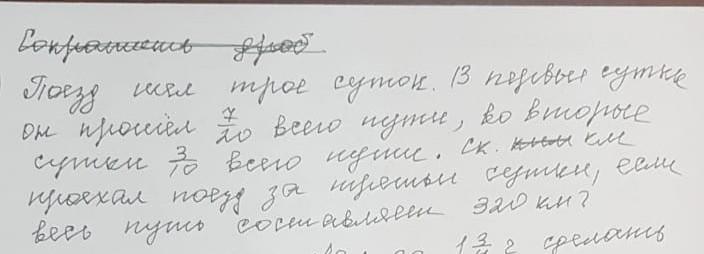 Сократить дроб
Поезд шел трое суток. В первые сутки
он прошёл 7/20 всего пути, во вторые
сутки 3/10 всего пути. Ск. км
проехал поезд за третьи сутки, если
весь путь составляет 320 км?
1 3/4 сделать